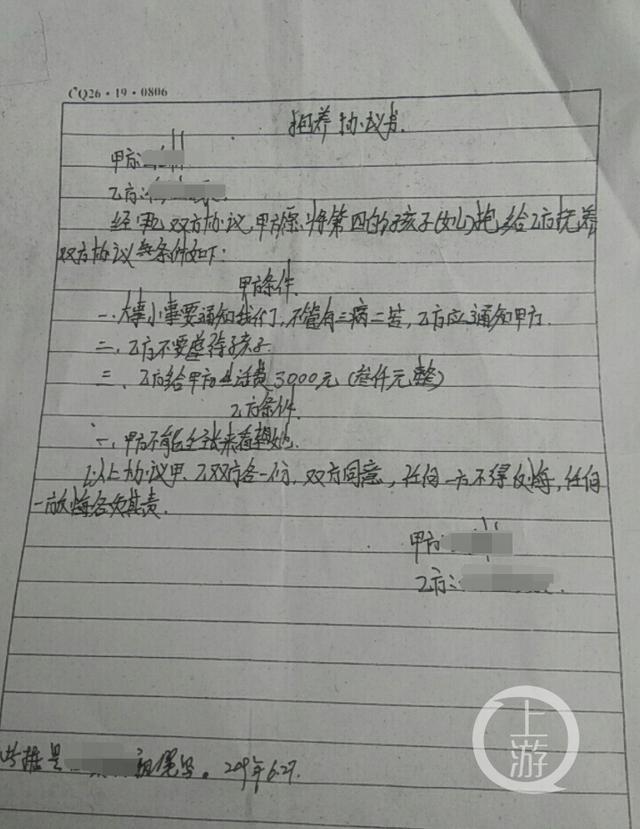 CQ26·19·0806
抱养协议书.
甲方:
乙方:
经甲乙双方协议,甲方愿将第四的个孩子(女儿)抱给乙方抚养
双方协议条件如下:
甲方条件
一.大事小事要通知我们,不管有三病二苦,乙方应通知甲方.
二、乙方不要虐待孩子.
三、乙方给甲方生活费3000元(叁仟元整)
乙方条件.
一、甲方不能主张来看她.
以上协议甲、乙双方各一份,双方同意,任何一方不得反悔,任何
一方反悔各负其责.
甲方:
乙方:
是 亲笔写。 6.27.
上游